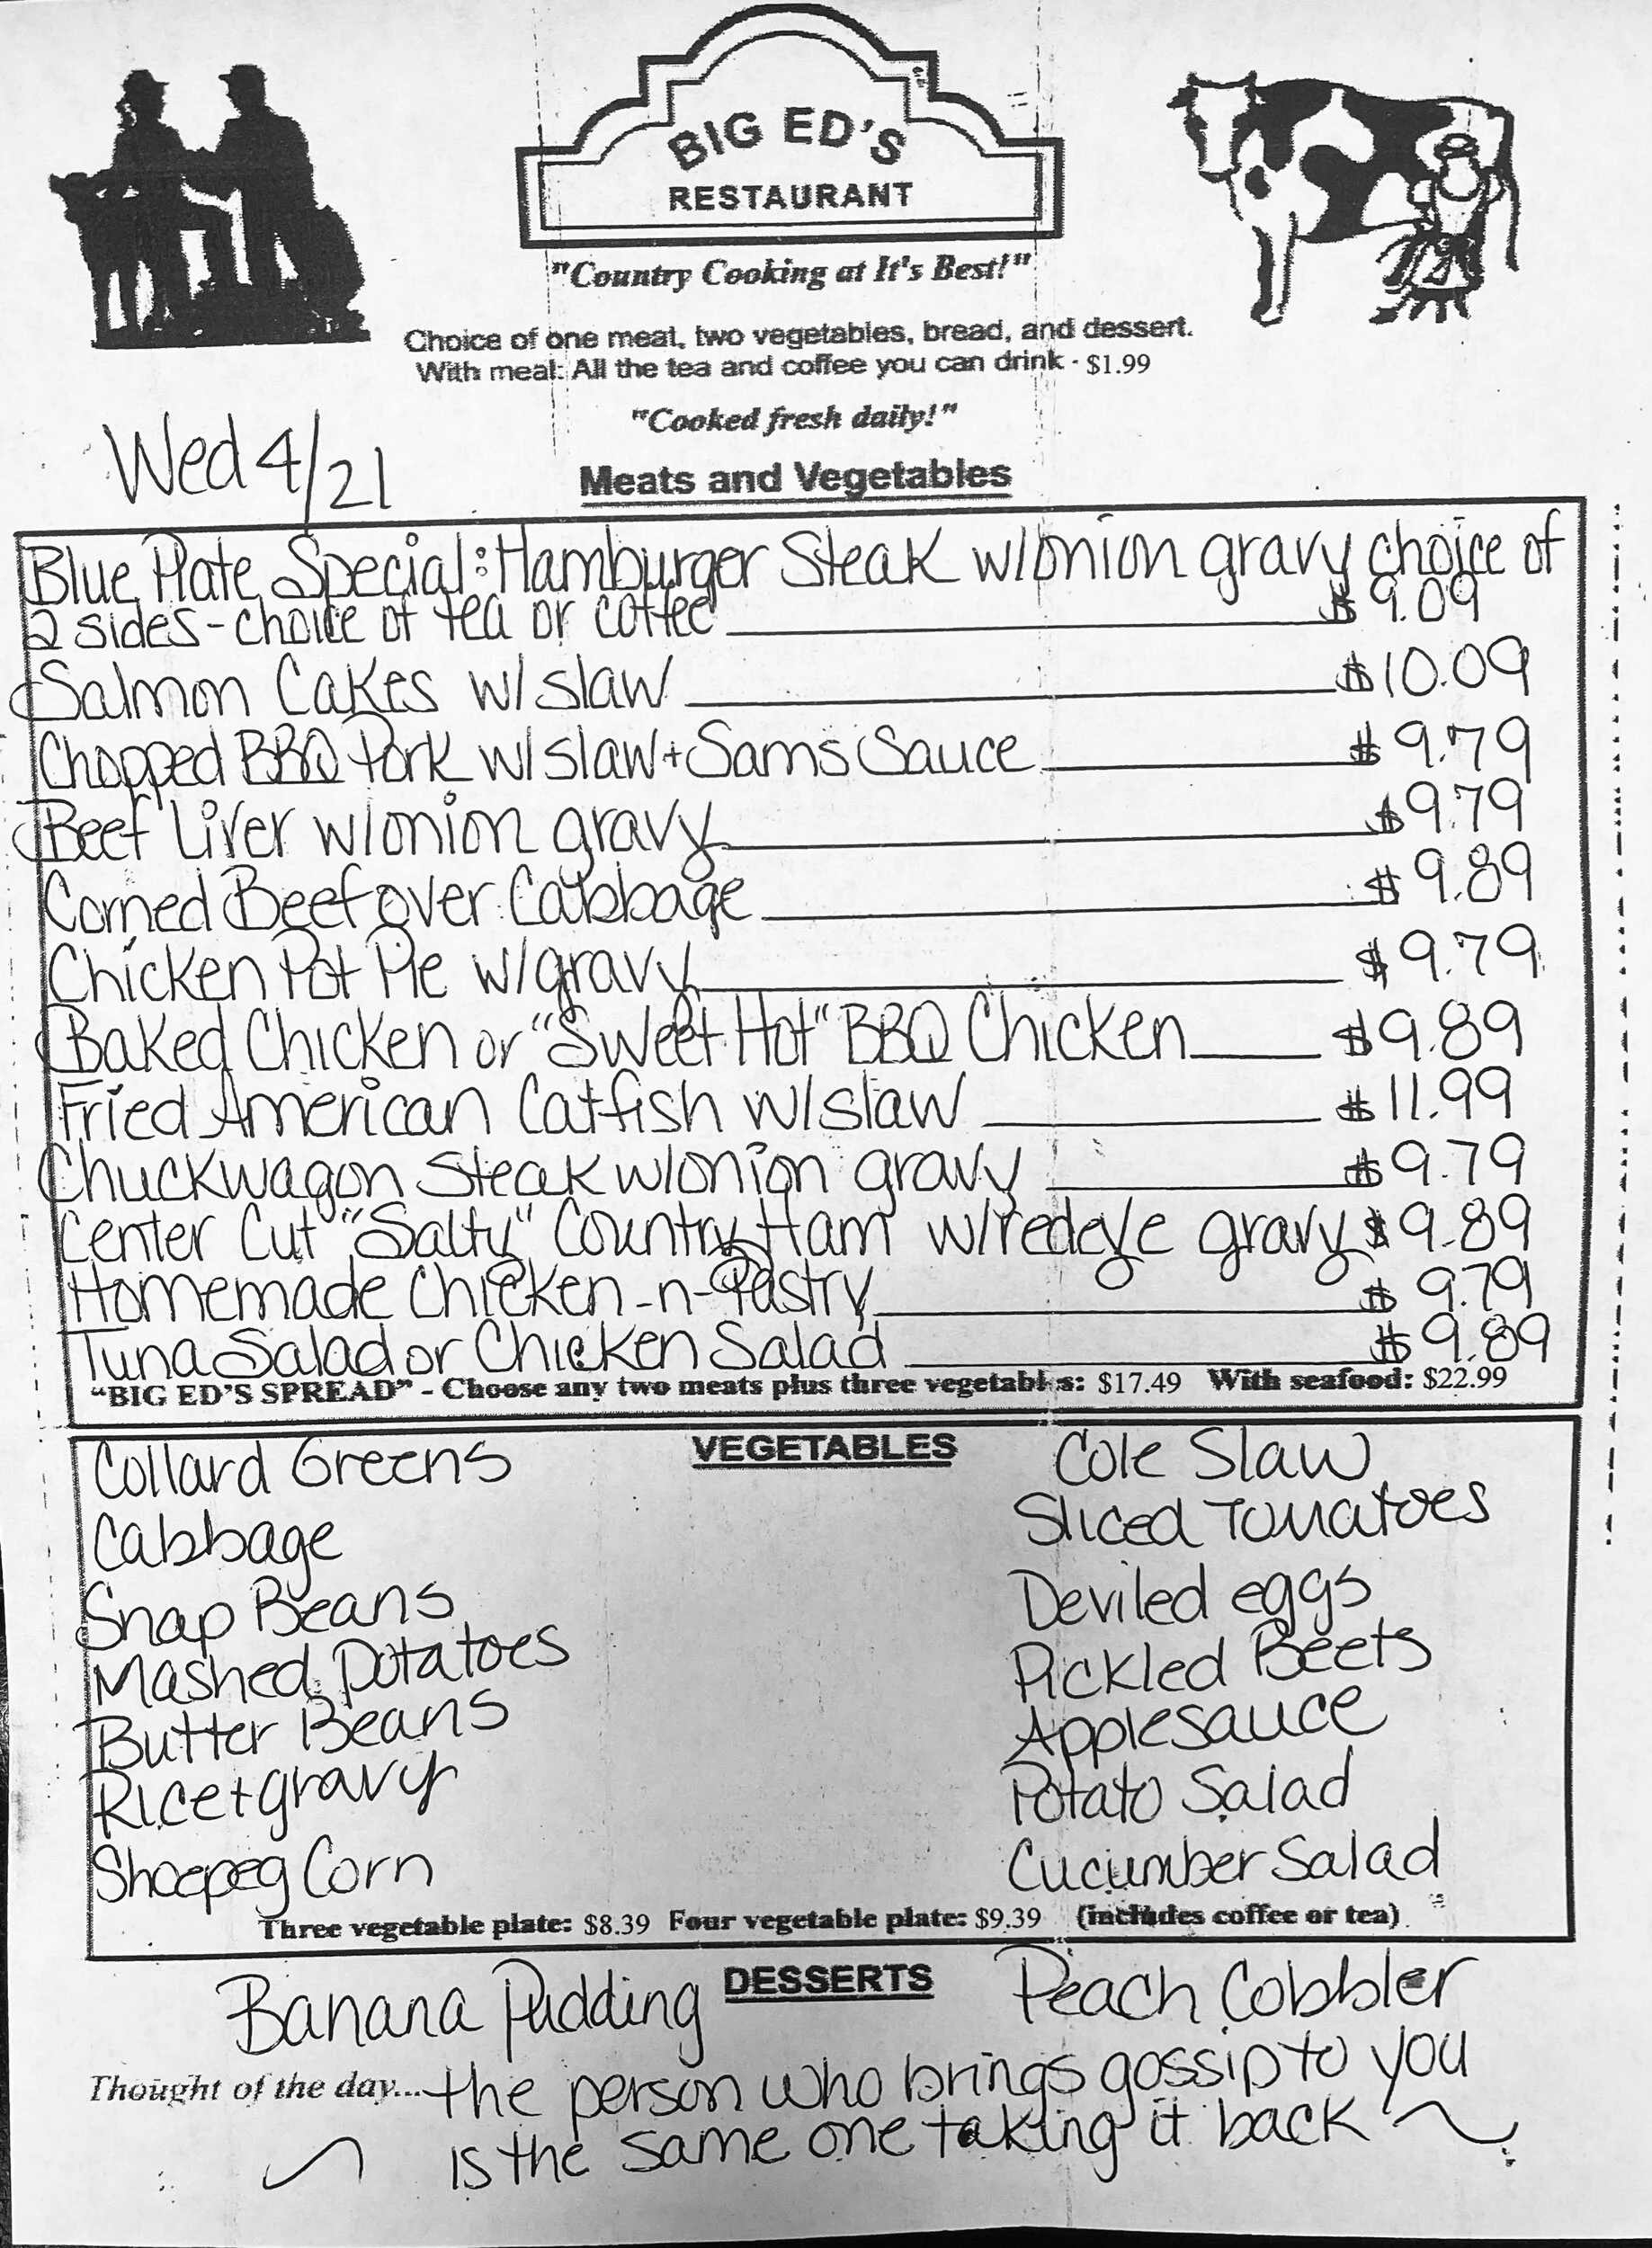 BIG ED'S
RESTAURANT
"Country Cooking at It's Best!"
Choice of one meat, two vegetables, bread, and dessert.
With meal: All the tea and coffee you can drink - $1.99
"Cooked fresh daily!"
Wed 4/21
Meats and Vegetables
Blue Plate Special: Hamburger Steak w/onion gravy choice of
2 sides - choice of tea or coffee $9.09
Salmon Cakes w/slaw $10.09
Chopped BBQ Pork w/slaw + Sams Sauce $9.79
Beef Liver w/onion gravy $9.79
Corned Beef over Cabbage $9.89
Chicken Pot Pie w/gravy $9.79
Baked Chicken or "Sweet Hot" BBQ Chicken $9.89
Fried American Catfish w/slaw $11.99
Chuckwagon Steak w/onion gravy $9.79
Center Cut "Salty" Country Ham w/redeye gravy $9.89
Homemade Chicken-n-Pastry $9.79
Tuna Salad or Chicken Salad $9.89
"BIG ED'S SPREAD" - Choose any two meats plus three vegetables: $17.49 With seafood: $22.99
VEGETABLES
Collard Greens
Cabbage
Snap Beans
Mashed Potatoes
Butter Beans
Rice + gravy
Shoepeg Corn
Cole Slaw
Sliced Tomatoes
Deviled eggs
Pickled Beets
Applesauce
Potato Salad
Cucumber Salad
Three vegetable plate: $8.39 Four vegetable plate: $9.39 (includes coffee or tea)
DESSERTS
Banana Pudding
Peach Cobbler
Thought of the day... the person who brings gossip to you
is the same one taking it back